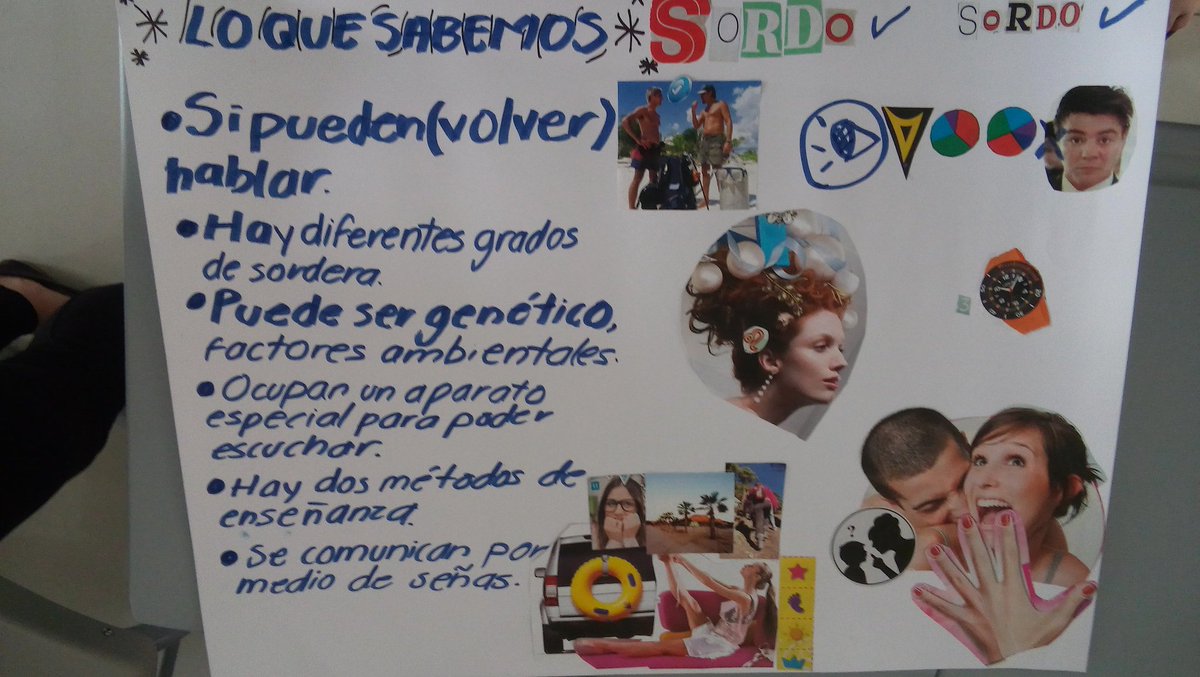 *LO QUE SABEMOS* SORDO SORDO
• Si pueden (volver)
hablar.
• Hay diferentes grados
de sordera.
• Puede ser genético,
factores ambientales.
• Ocupan un aparato
especial para poder
escuchar.
• Hay dos métodos de
enseñanza.
• Se comunican por
medio de señas.
?